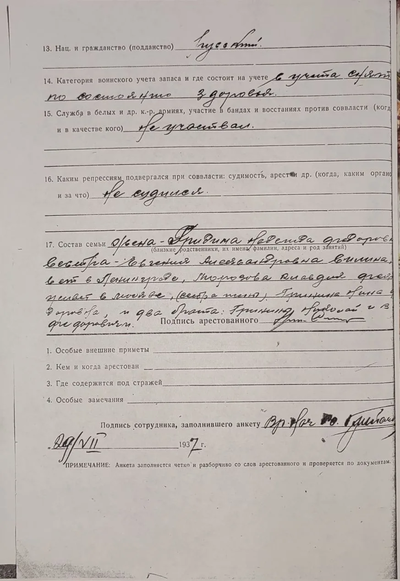 13. Нац. и гражданство (подданство) Русский.
14. Категория воинского учета запаса и где состоит на учете с учета снят
по состоянию здоровья.
15. Служба в белых и др. к.-р. армиях, участие в бандах и восстаниях против совласти (когда
и в качестве кого) Не участвал.
16. Каким репрессиям подвергался при совласти: судимость, арест и др. (когда, каким орган
и за что) Не судился.
17. Состав семьи Жена - Гридина Надежда Федоров
(близкие родственники, их имена, фамилии, адреса и род занятий)
Сестра - Евгения Александровна
в Ленинграде, Морозова Клавдия
живет в Москве, (сестра жены)
и два брата: Николай и
Федоровичи.
Подпись арестованного
1. Особые внешние приметы
2. Кем и когда арестован
3. Где содержится под стражей
4. Особые замечания
Подпись сотрудника, заполнившего анкету
29/VII 1937 г.
ПРИМЕЧАНИЕ: Анкета заполняется четко и разборчиво со слов арестованного и проверяется по документам.